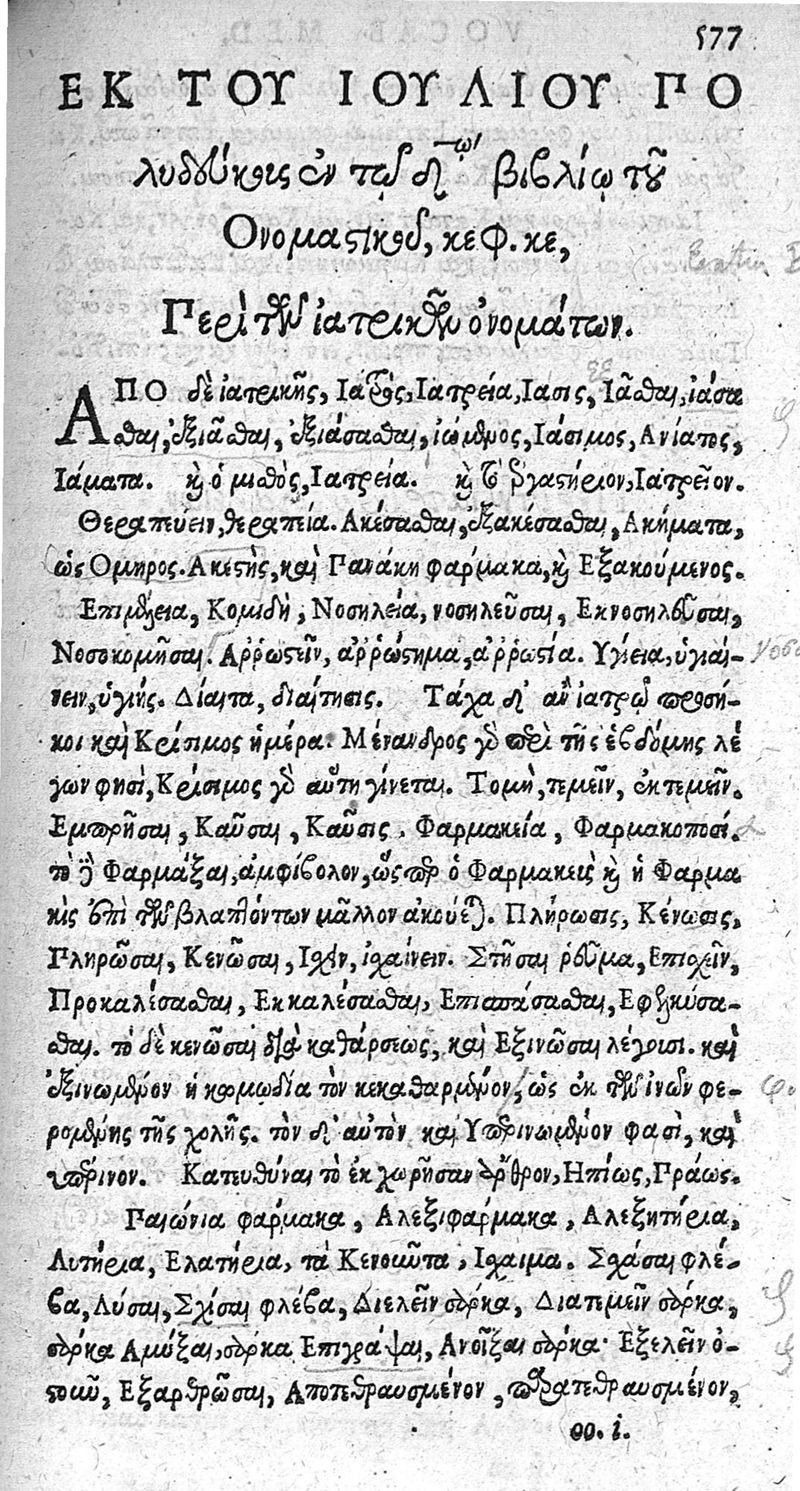 577
ΕΚ ΤΟΥ ΙΟΥΛΙΟΥ ΠΟ
λυδεύκους ἐν τῷ δʹ τῳ βιβλίῳ τοῦ
Ονομαστικοῦ, κεφ. κε,
Περὶ τῶν ἰατρικῶν ὀνομάτων.
ΑΠΟ δὲ ἰατρικῆς, Ιατρὸς, Ιατρεία, Ιασις, Ιᾶσθαι, ἰάσα
σθαι, ἐξιᾶσθαι, ἐξιάσασθαι, ἰώμενος, Ιάσιμος, Ανίατος,
Ιάματα. καὶ ὁ μισθὸς, Ιατρεία. καὶ τὸ ἐργαστήριον, Ιατρεῖον.
Θεραπεύειν, θεραπεία. Ακέσασθαι, ἐξακέσασθαι, Ακήματα,
ὡς Ομηρος. Ακεστὴς, καὶ Πανάκη φάρμακα, καὶ Εξακούμενος.
Επιμέλεια, Κομιδὴ, Νοσηλεία, νοσηλεῦσαι, Εκνοσηλεῦσαι,
Νοσοκομῆσαι. Αῤῥωστεῖν, ἀῤῥώστημα, ἀῤῥωστία. Υγίεια, ὑγιαί-
νειν, ὑγιής. Δίαιτα, διαίτησις. Τάχα δ' ἂν ἰατρῷ προσή-
κοι καὶ Κρίσιμος ἡμέρα. Μένανδρος γὰρ περὶ τῆς ἑβδόμης λέ
γων φησὶ, Κρίσιμος γὰρ αὕτη γίνεται. Τομὴ, τεμεῖν, ἐκτεμεῖν.
Εμπρῆσαι, Καῦσαι, Καῦσις. Φαρμακεία, Φαρμακοποσί.
τὸ δὲ Φαρμάξαι, ἀμφίβολον, ὥσπερ ὁ Φαρμακεὶς καὶ ἡ Φαρμα
κὶς ἐπὶ τῶν βλαπτόντων μᾶλλον ἀκούεται. Πλήρωσις, Κένωσις,
Πληρῶσαι, Κενῶσαι, Ισχν, ἰσχαίνειν. Στῆσαι ῥεῦμα, Επισχεῖν,
Προκαλέσασθαι, Εκκαλέσασθαι, Επισπάσασθαι, Εφελκύσα-
σθαι. τὸ δὲ κενῶσαι διὰ καθάρσεως, καὶ Εξινῶσαι λέγουσι. καὶ
ἐξινωμένον ἡ κωμωδία τὸν κεκαθαρμένον, ὡς ἐκ τῶν ἰνῶν φε-
ρομένης τῆς χολῆς. τὸν δ' αὐτὸν καὶ Υπερινωμένον φασὶ, καὶ
ὑπέρινον. Κατευθῦναι τὸ ἐκχωρῆσαν ἄρθρον, Ηπίως, Πράως.
Παιώνια φάρμακα, Αλεξιφάρμακα, Αλεξητήρια,
Λυτήρια, Ελατήρια, τὰ Κενοῦντα, Ισχαιμα. Σχάσαι φλέ-
βα, Λύσαι, Σχίσαι φλέβα, Διελεῖν σάρκα, Διατεμεῖν σάρκα,
σάρκα Αμύξαι, σάρκα Επιγράψαι, Ανοῖξαι σάρκα. Εξελεῖν ὀ-
στοῦν, Εξαρθρῶσαι, Αποτεθραυσμένον, παρατεθραυσμένον,
οο. i.